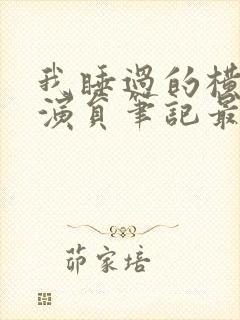 我睡過的橫
演員筆記最
茆家培